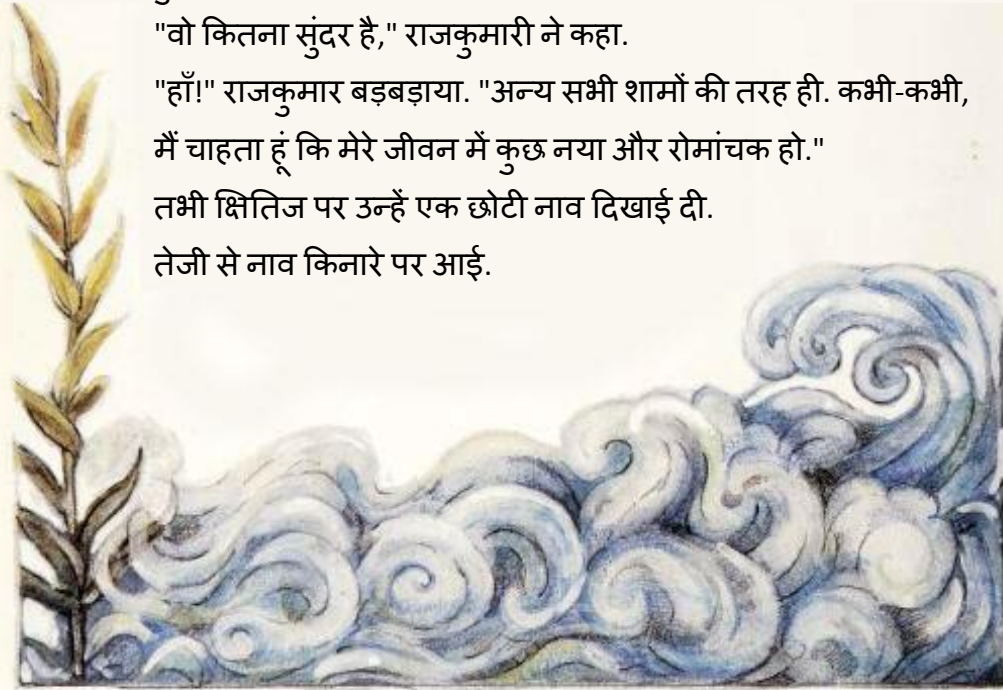 "वो कितना सुंदर है," राजकुमारी ने कहा.
"हाँ!" राजकुमार बड़बड़ाया. "अन्य सभी शामों की तरह ही. कभी-कभी,
मैं चाहता हूं कि मेरे जीवन में कुछ नया और रोमांचक हो."
तभी क्षितिज पर उन्हें एक छोटी नाव दिखाई दी.
तेजी से नाव किनारे पर आई.